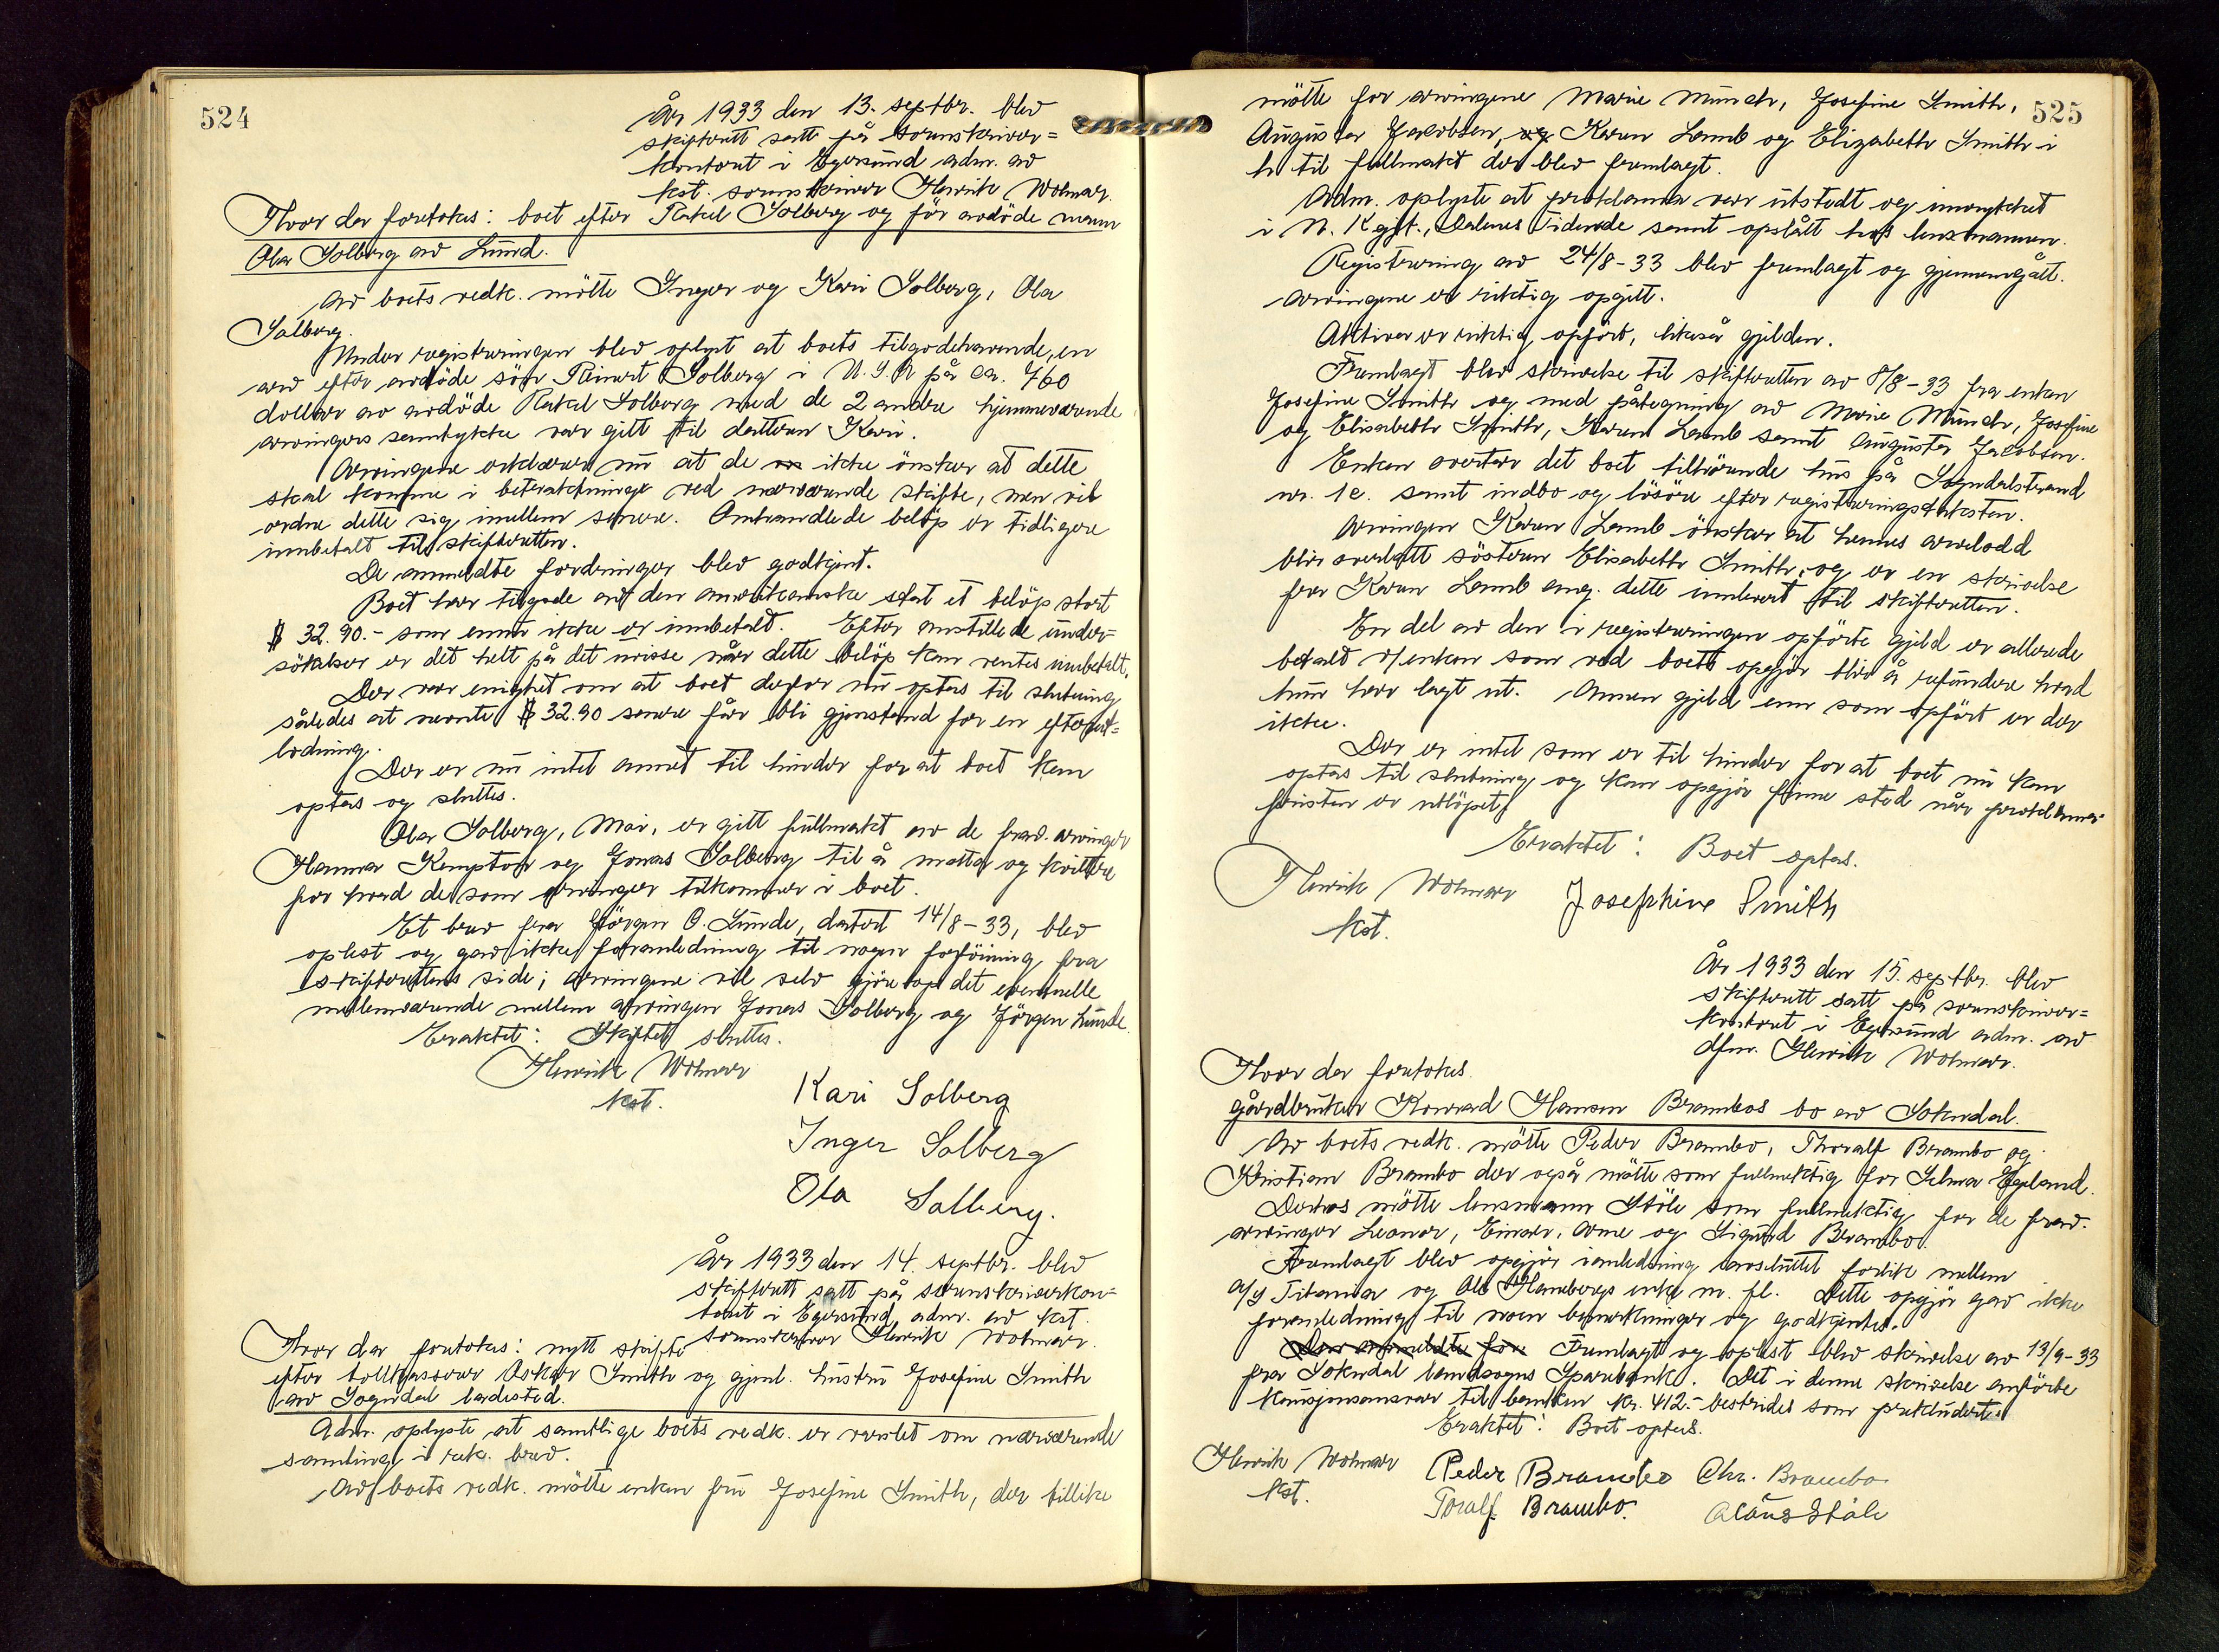 524
År 1933 den 13. septbr. blev
skifterett satt på sorenskriver=
kontoret i Egersund adm. av
kst. sorenskriver Henrik Wolmar.
Hvor der foretokes: boet efter Rakel Solberg og før avdöde mann
Ola Solberg av Lund.
Av boets vedk. mötte Inger og Kari Solberg, Ola
Solberg.
Under registreringen blev oplyst at boets tilgodehavende, en
arv efter avdöde sön Reinert Solberg i U.S.A på ca. 760
dollar av avdöde Rakel Solberg med de 2 andre hjemmeværende
arvingers samtykke var gitt til datteren Kari.
Arvingene erklærer nu at de ikke önsker at dette
skal komme i betraktning ved nærværende skifte, men vil
ordne dette sig imellem senere. Omhandlede belöp er tidligere
innbetalt til skifteretten.
De anmeldte fordringer blev godkjent.
Boet har tilgode av den amerikanske stat et belöp stort
$ 32.90.- som ennu ikke er innbetalt. Efter anstillede under=
sökelser er det helt på det uvisse når dette belöp kan ventes innbetalt.
Der var enighet om at boet derfor nu optas til slutning
således at nevnte $ 32.90 senere får bli gjenstand for en efterut=
lodning.
Der er nu intet annet til hinder for at boet kan
optas og sluttes.
Ola Solberg, Moi, er gitt fullmakt av de frav. arvinger
Hanna Kempton og Jonas Solberg til å motta og kvittere
for hvad de som arvinger tilkommer i boet.
Et brev fra Jörgen O. Lunde, datert 14/8-33, blev
oplest og gav ikke foranledning til nogen forföining fra
skifterettens side; arvingene vil selv gjöre op det eventuelle
mellemværende mellem arvingen Jonas Solberg og Jörgen Lunde.
Eraktet: Skiftet sluttes.
Henrik Wolmar
kst.
Kari Solberg
Inger Solberg
Ola Solberg.
År 1933 den 14. septbr. blev
skifterett satt på sorenskriverkon=
toret i Egersund, adm. av kst.
sorenskriver Henrik Wolmar.
Hvor der foretokes: nytt skifte
efter tollkasserer Oskar Smith og gjenl. hustru Josefine Smith
av Sogndal ladested.
Adm. oplyste at samtlige boets vedk. er varslet om nærværende
samling i rek. brev.
Av boets vedk. mötte enken fru Josefine Smith, der tillike
525
mötte for arvingene Marie Münch, Josefine Smith,
Augusta Jacobsen, og Karen Lamb og Elizabeth Smith i
h. til fullmakt der blev fremlagt.
Adm. oplyste at proklama var utstedt og innrykket
i N. Kgjt., Dalenes Tidende samt opslått hos lensmannen.
Registrering av 24/8-33 blev fremlagt og gjennemgått.
Arvingene er riktig opgitt.
Aktiva er riktig opfört, likeså gjelden.
Fremlagt blev skrivelse til skifteretten av 8/8-33 fra enken
Josefine Smith og med påtegning av Marie Münch, Josefine
og Elisabeth Smith, Karen Lamb samt Augusta Jacobsen.
Enken overtar det boet tilhörende hus på Sogndalstrand
nr. 1e. samt indbo og lösöre efter registreringstaksten.
Arvingen Karen Lamb önsker at hennes arvelodd
blir overlatt sösteren Elisabeth Smith, og er en skrivelse
fra Karen Lamb ang. dette innlevert til skifteretten.
En del av den i registreringen opförte gjeld er allerede
betalt av enken som ved boets opgjör blir å refundere hvad
hun har lagt ut. Annen gjeld enn som opfört er der
ikke.
Der er intet som er til hinder for at boet nu kan
optas til slutning, og kan opgjör finne sted når proklama=
fristen er utlöpet.
Eraktet: Boet optas.
Henrik Wolmar
kst.
Josephine Smith
År 1933 den 15. septbr. blev
skifterett satt på sorenskriver=
kontoret i Egersund adm. av
dfm. Henrik Wolmar.
Hvor der foretokes
gårdbruker Konrad Hansen Brambos bo av Sokndal.
Av boets vedk. mötte Peder Brambo, Thoralf Brambo og
Kristian Brambo der også mötte som fullmektig for Selma Egeland.
Derhos mötte lensmann Ståle som fullmektig for de frav.
arvinger Leonor, Einar, Arne og Sigurd Brambo.
Fremlagt blev opgjör i anledning avsluttet forlik mellem
A/S Titania og Ole Hambergs enke m. fl. Dette opgjör gav ikke
foranledning til noen bemerkninger og godkjentes.
Den anmeldte for Fremlagt og oplest blev skrivelse av 13/9-33
fra Sokndal landsogns Sparebank. Det i denne skrivelse anförte
kausjonsansvar til banken kr. 412.- bestrides som prekludert.
Eraktet: Boet optas.
Henrik Wolmar
kst.
Peder Brambo Chr. Brambo
Toralf Brambo. Claus Ståle